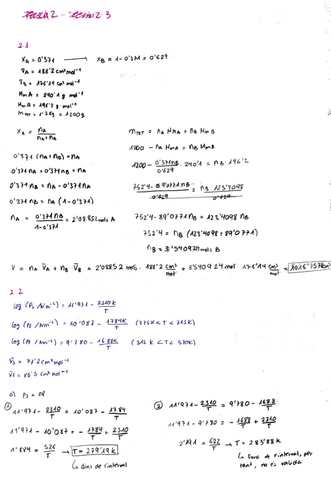 2.1
x_A = 0'371 → x_B = 1 - 0'371 = 0'629
V̄_A = 188'2 cm³ mol⁻¹
V̄_B = 176'14 cm³ mol⁻¹
M_m A = 240'1 g mol⁻¹
M_m B = 196'2 g mol⁻¹
m_TOT = 1'2 Kg = 1200 g
x_A = n_A / (n_A + n_B)
0'371 (n_A + n_B) = n_A
0'371 n_A + 0'371 n_B = n_A
0'371 n_B = n_A - 0'371 n_A
0'371 n_B = n_A (1 - 0'371)
n_A = 0'371 n_B / (1 - 0'371) = 2'08852 mols A
m_TOT = n_A M_mA + n_B M_mB
1200 - n_A M_mA = n_B M_mB
1200 - (0'371 n_B / 0'629) · 240'1 = n_B · 196'2
752'4 - 89'0771 n_B = n_B 123'4098
752'4 = n_B (123'4098 + 89'0771)
n_B = 3'540924 mols B
V = n_A V̄_A + n_B V̄_B = 2'08852 mol · 188'2 cm³/mol + 3'540924 mol · 176'14 cm³/mol = 1016'757 cm³
2.2
log (P_s / Nm⁻²) = 11'971 - 2310 K / T
log (P_l / Nm⁻²) = 10'087 - 1784 K / T
log (P_l / Nm⁻²) = 9'780 - 1688 K / T
a) P_s = P_l
① 11'971 - 2310/T = 10'087 - 1784/T
11'971 - 10'087 = - 1784/T + 2310/T
1'884 = 526/T → T = 279'19 K
↳ dins de l'interval
② 11'971 - 2310/T = 9'780 - 1688/T
11'971 - 9'780 = - 1688/T + 2310/T
2'191 = 622/T → T = 283'88 K
↳ fora de l'interval, per
tant, no és vàlida